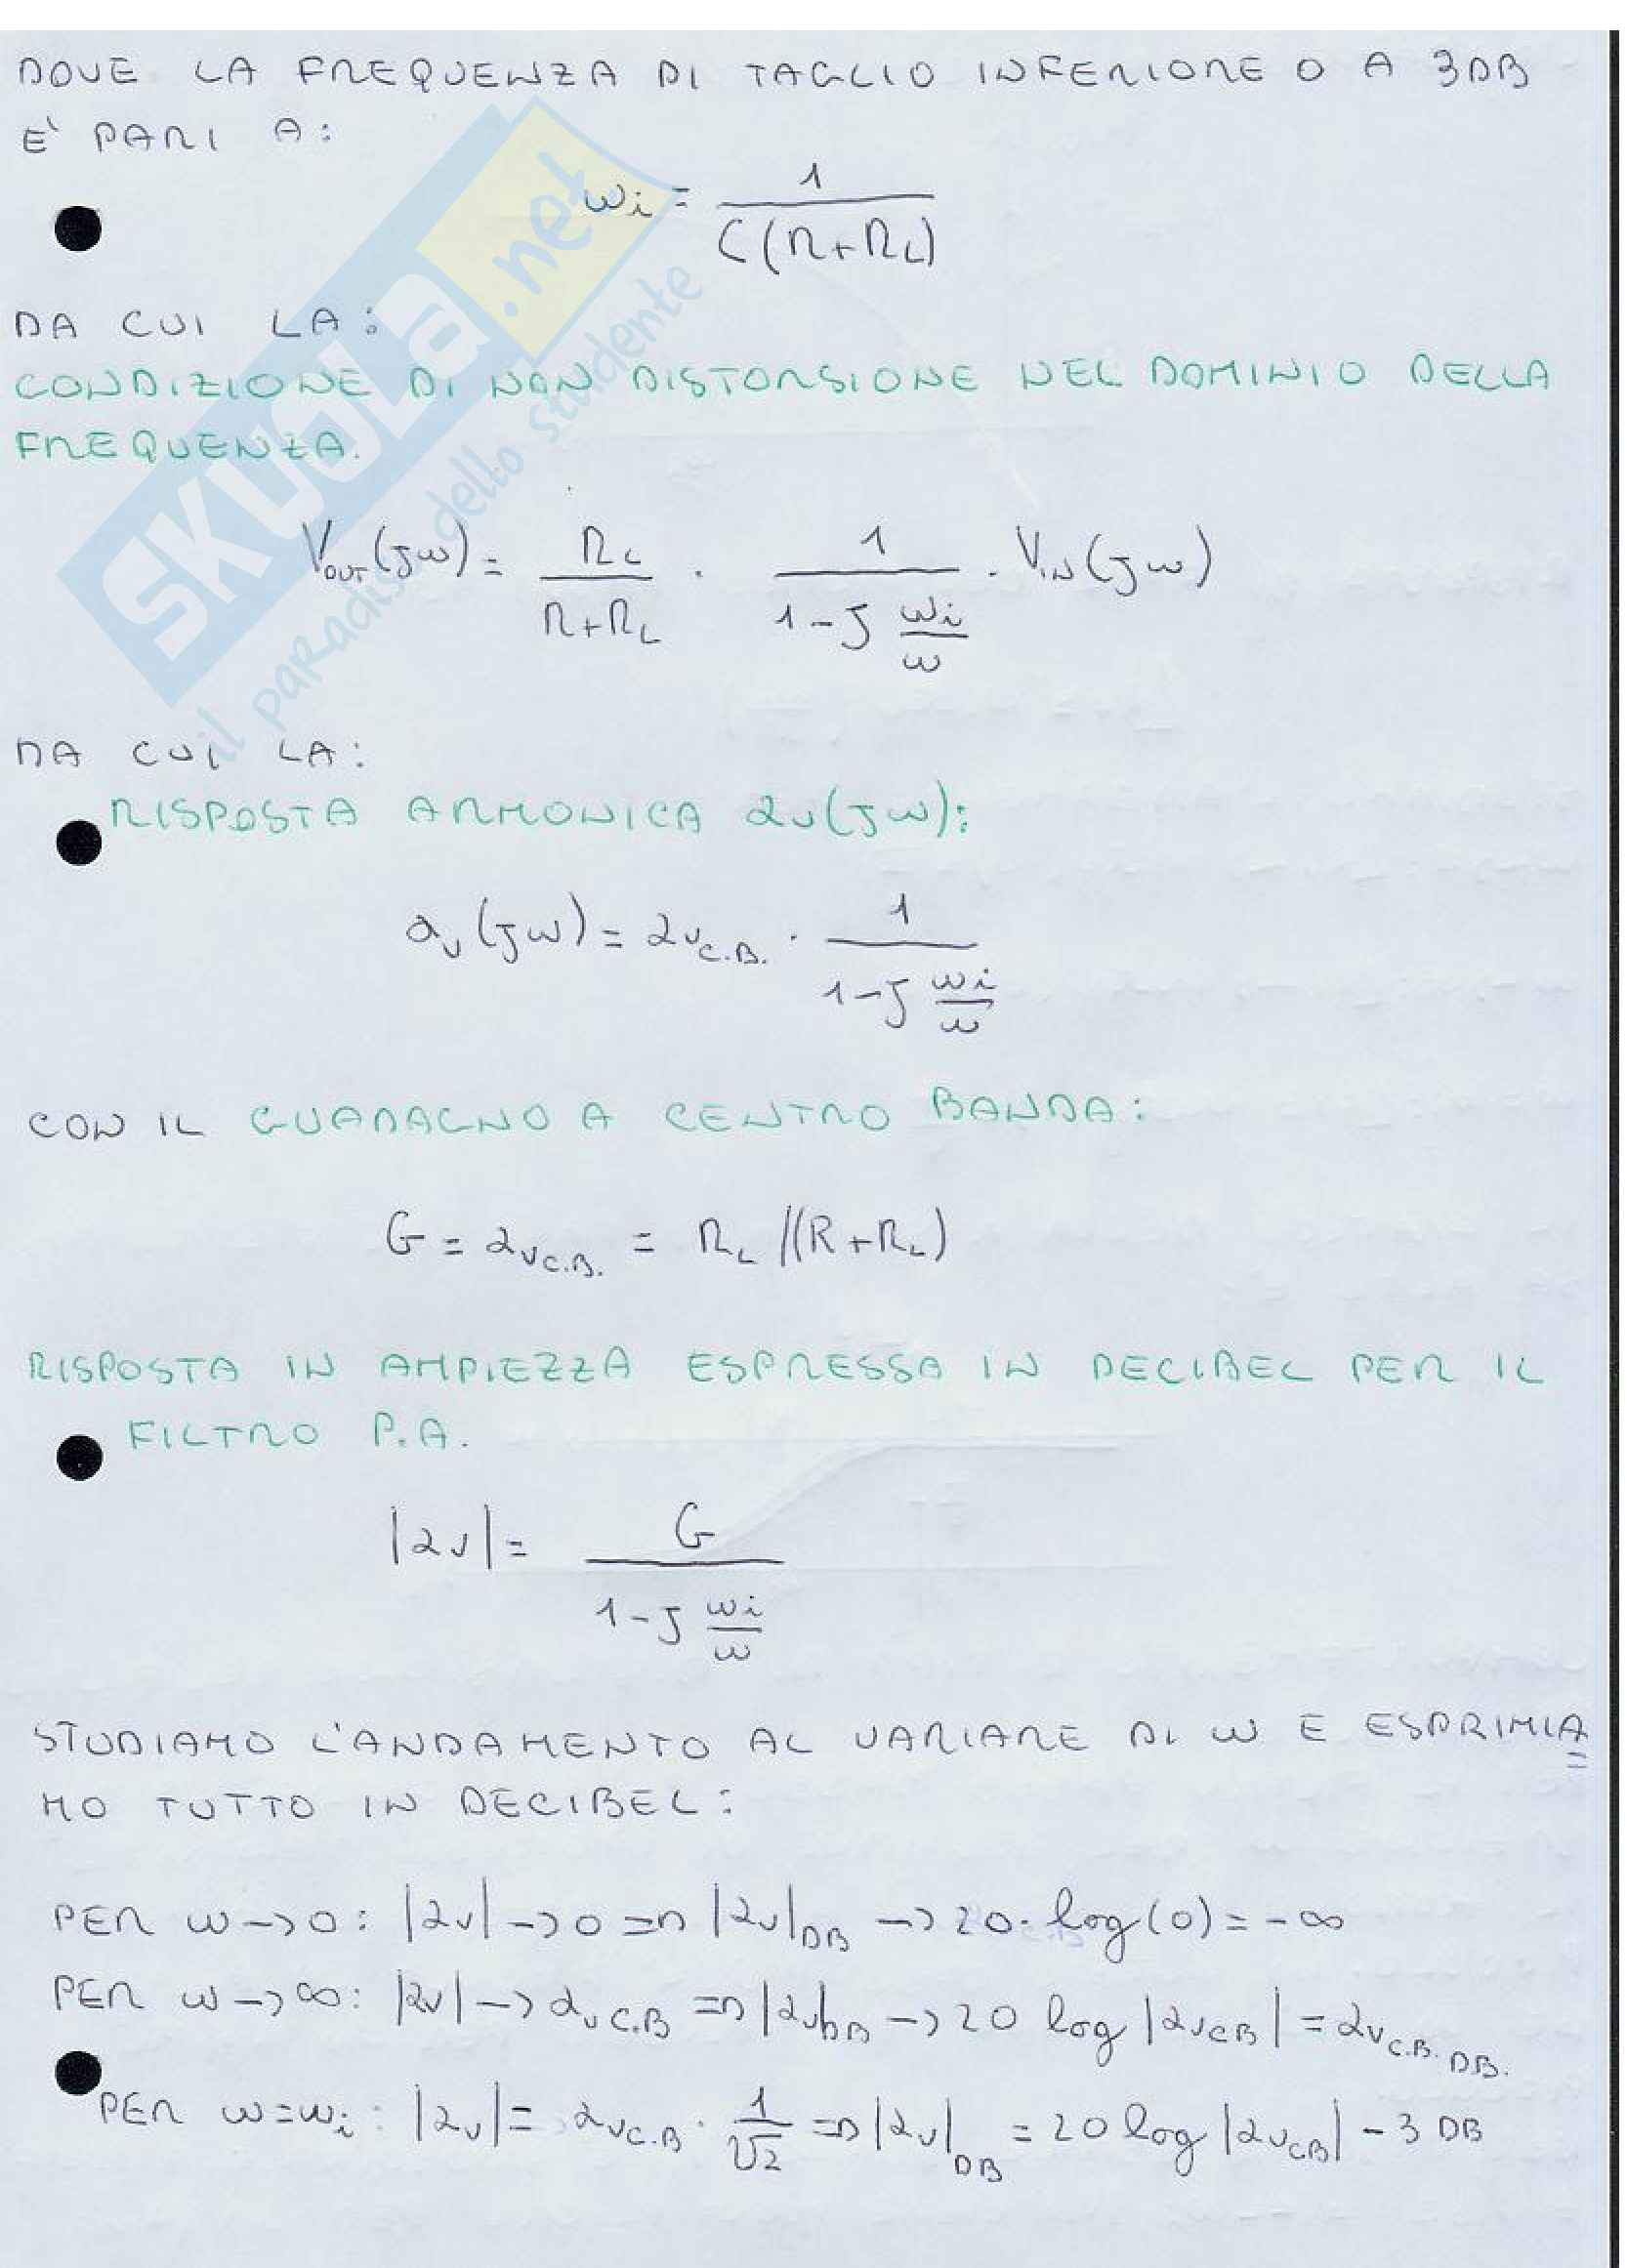 DOVE LA FREQUENZA DI TAGLIO INFERIORE O A 3DB
E' PARI A:
ωi = 1 / C(R+RL)
DA CUI LA:
CONDIZIONE DI NON DISTORSIONE NEL DOMINIO DELLA
FREQUENZA.
VOUT(jω) = RL / R+RL · 1 / 1-j ωi/ω · VIN(jω)
DA CUI LA:
RISPOSTA ARMONICA av(jω):
av(jω) = avC.B. · 1 / 1-j ωi/ω
CON IL GUADAGNO A CENTRO BANDA:
G = avC.B. = RL //(R+RL)
RISPOSTA IN AMPIEZZA ESPRESSA IN DECIBEL PER IL
FILTRO P.A.
|av| = G / 1-j ωi/ω
STUDIAMO L'ANDAMENTO AL VARIARE DI W E ESPRIMIA=
MO TUTTO IN DECIBEL:
PER ω→0: |av|→0 => |av|DB → 20·log(0) = -∞
PER ω→∞: |av|→avC.B => |av|DB → 20 log |avCB| = avC.B. DB.
PER ω=ωi: |av| = avC.B · 1/√2 => |av|DB = 20 log |avCB| - 3 DB
SKUOLA.net
il paradiso dello studente